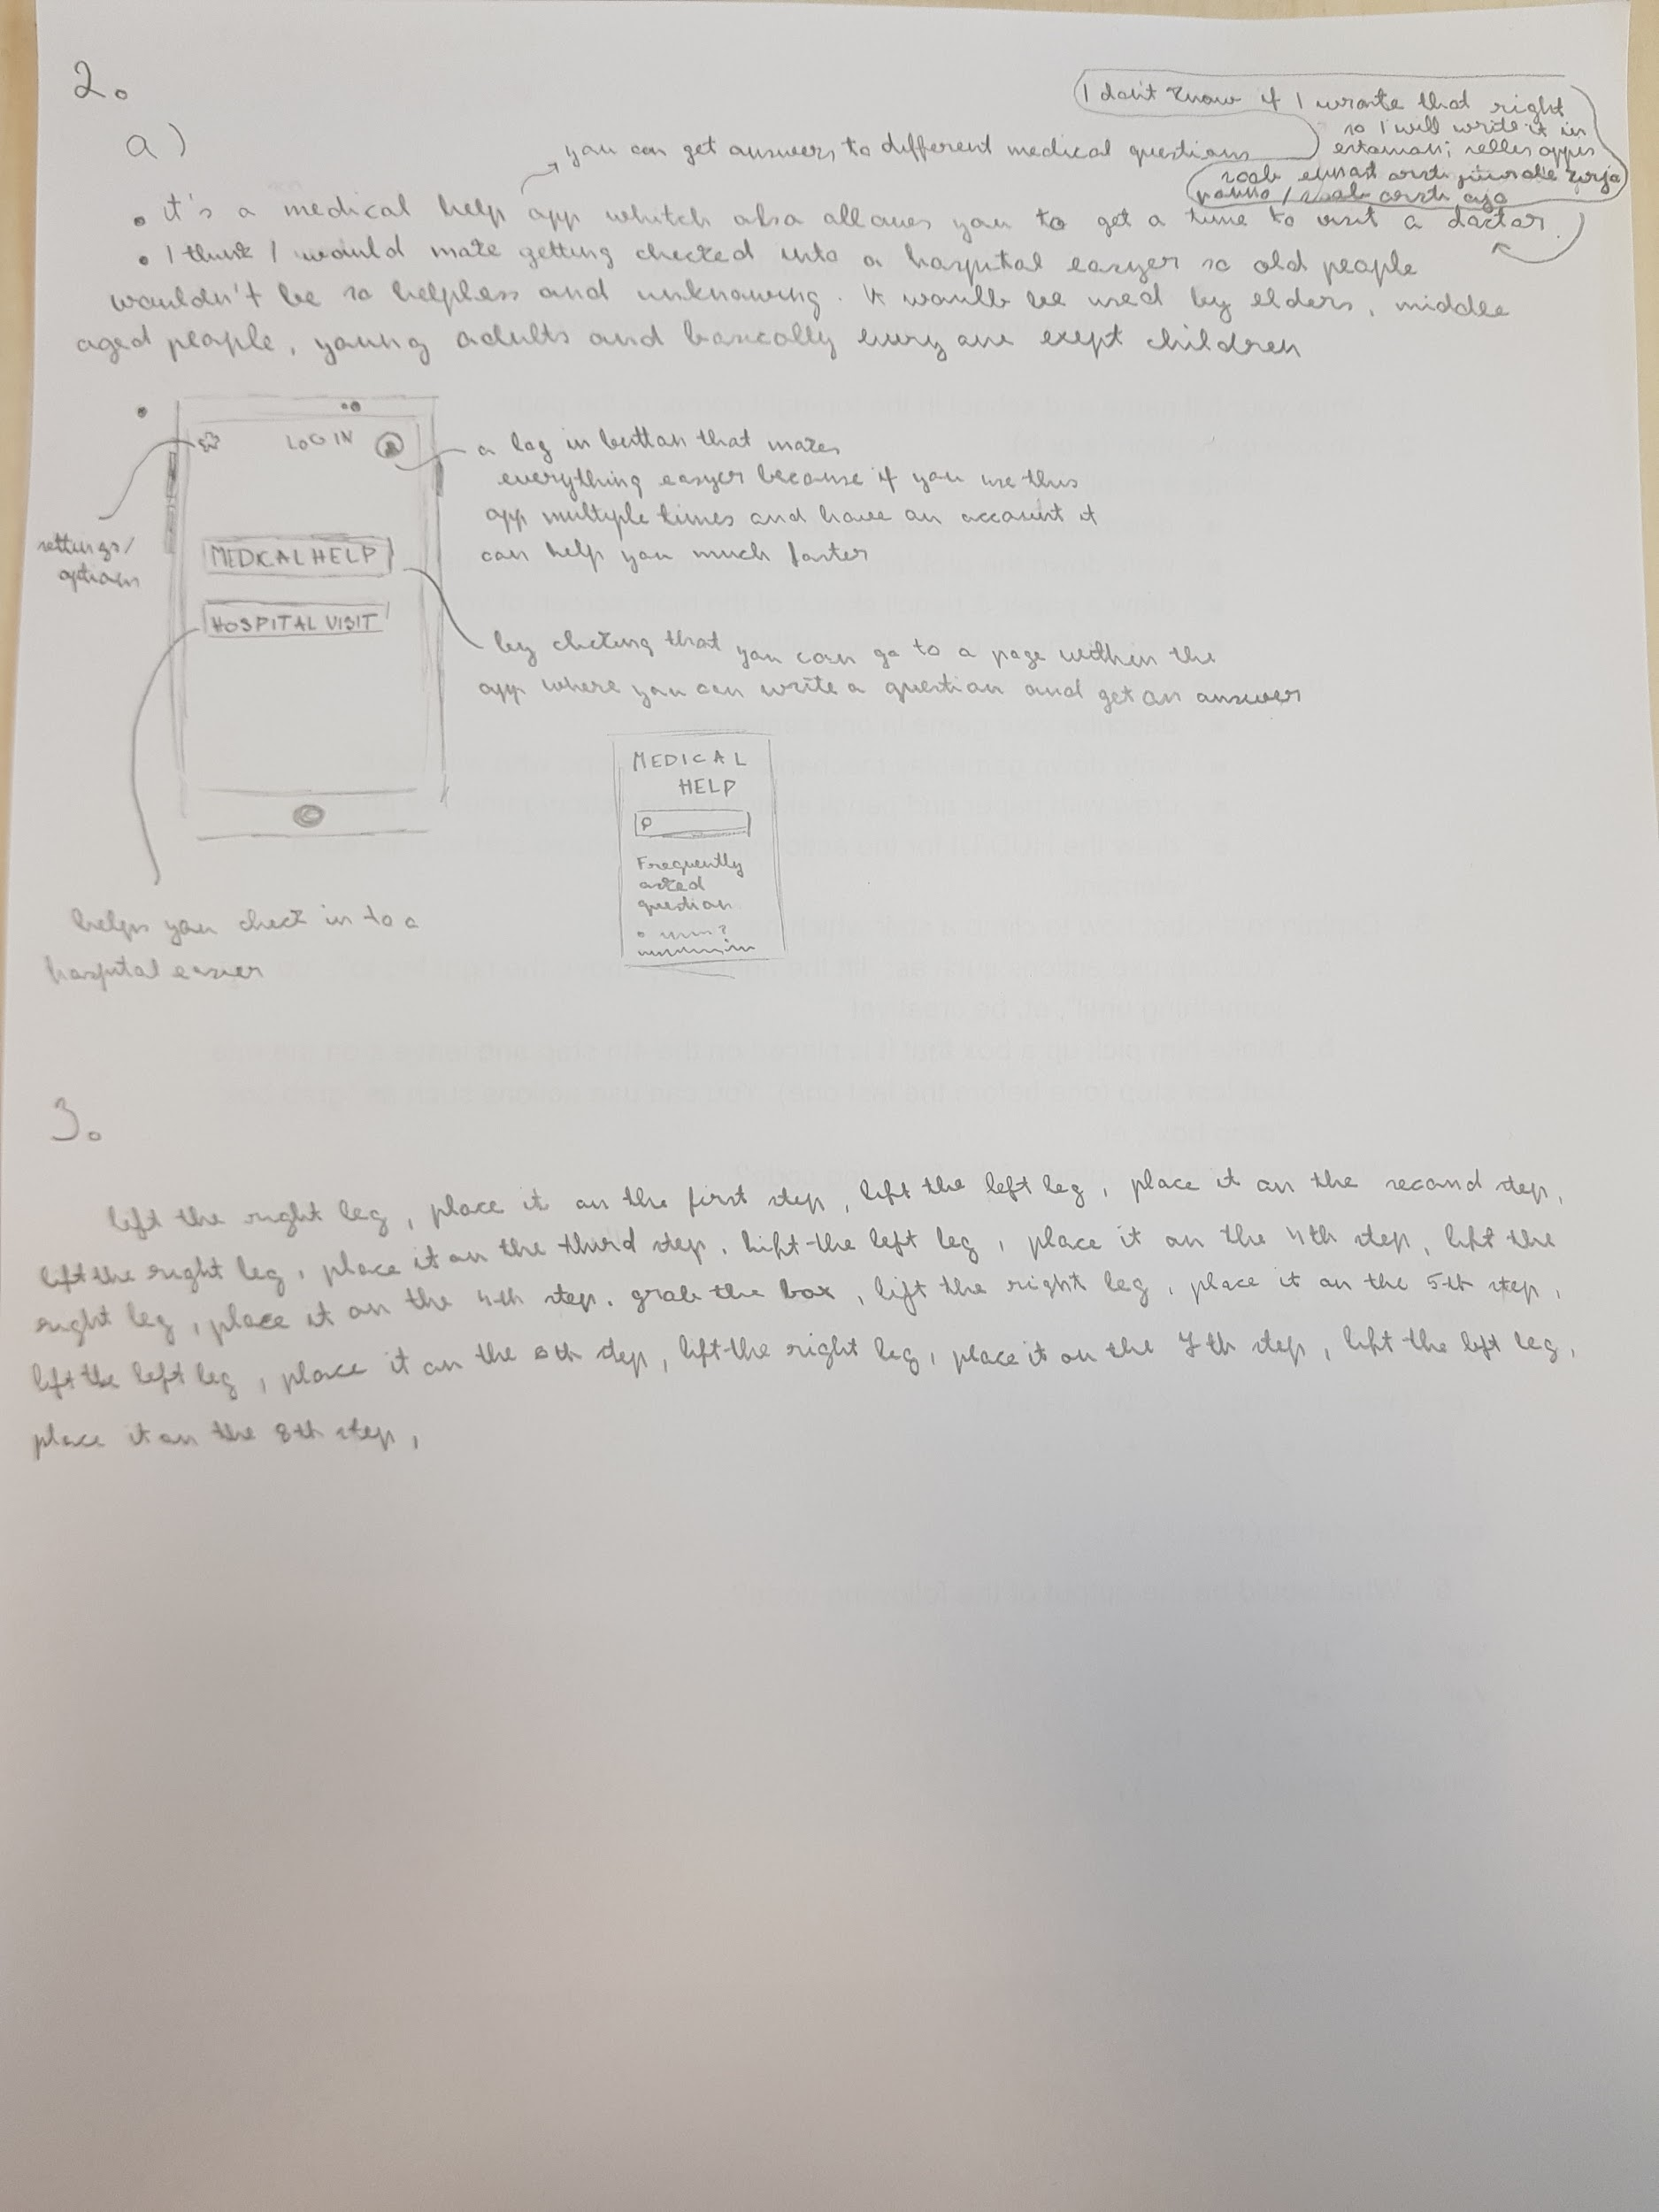 2.
I don't know if I wrote that right
so I will write it in
estonian; selles appis
saab ennast arsti juurde kirja
panna / saab arsti aja
a)
you can get answers to different medical questions
• it's a medical help app whitch also allows you to get a time to visit a doctor.
• I think I would make getting checked into a hospital easyer so old people
wouldn't be so helpless and unknowing. It would be used by elders, middle
aged people, young adults and basically every one exept children
•
LOG IN
a log in button that makes
everything easyer because if you use this
app multiple times and have an account it
can help you much faster
settings/
options
MEDICAL HELP
HOSPITAL VISIT
by clicking that you can go to a page within the
app where you can write a question and get an answer
MEDICAL
HELP
Frequently
asked
question
helps you check in to a
hospital easier
3.
lift the right leg, place it on the first step, lift the left leg, place it on the second step,
lift the right leg, place it on the third step, lift the left leg, place it on the 4th step, lift the
right leg, place it on the 4th step. grab the box, lift the right leg, place it on the 5th step,
lift the left leg, place it on the 6th step, lift the right leg, place it on the 7th step, lift the left leg,
place it on the 8th step,